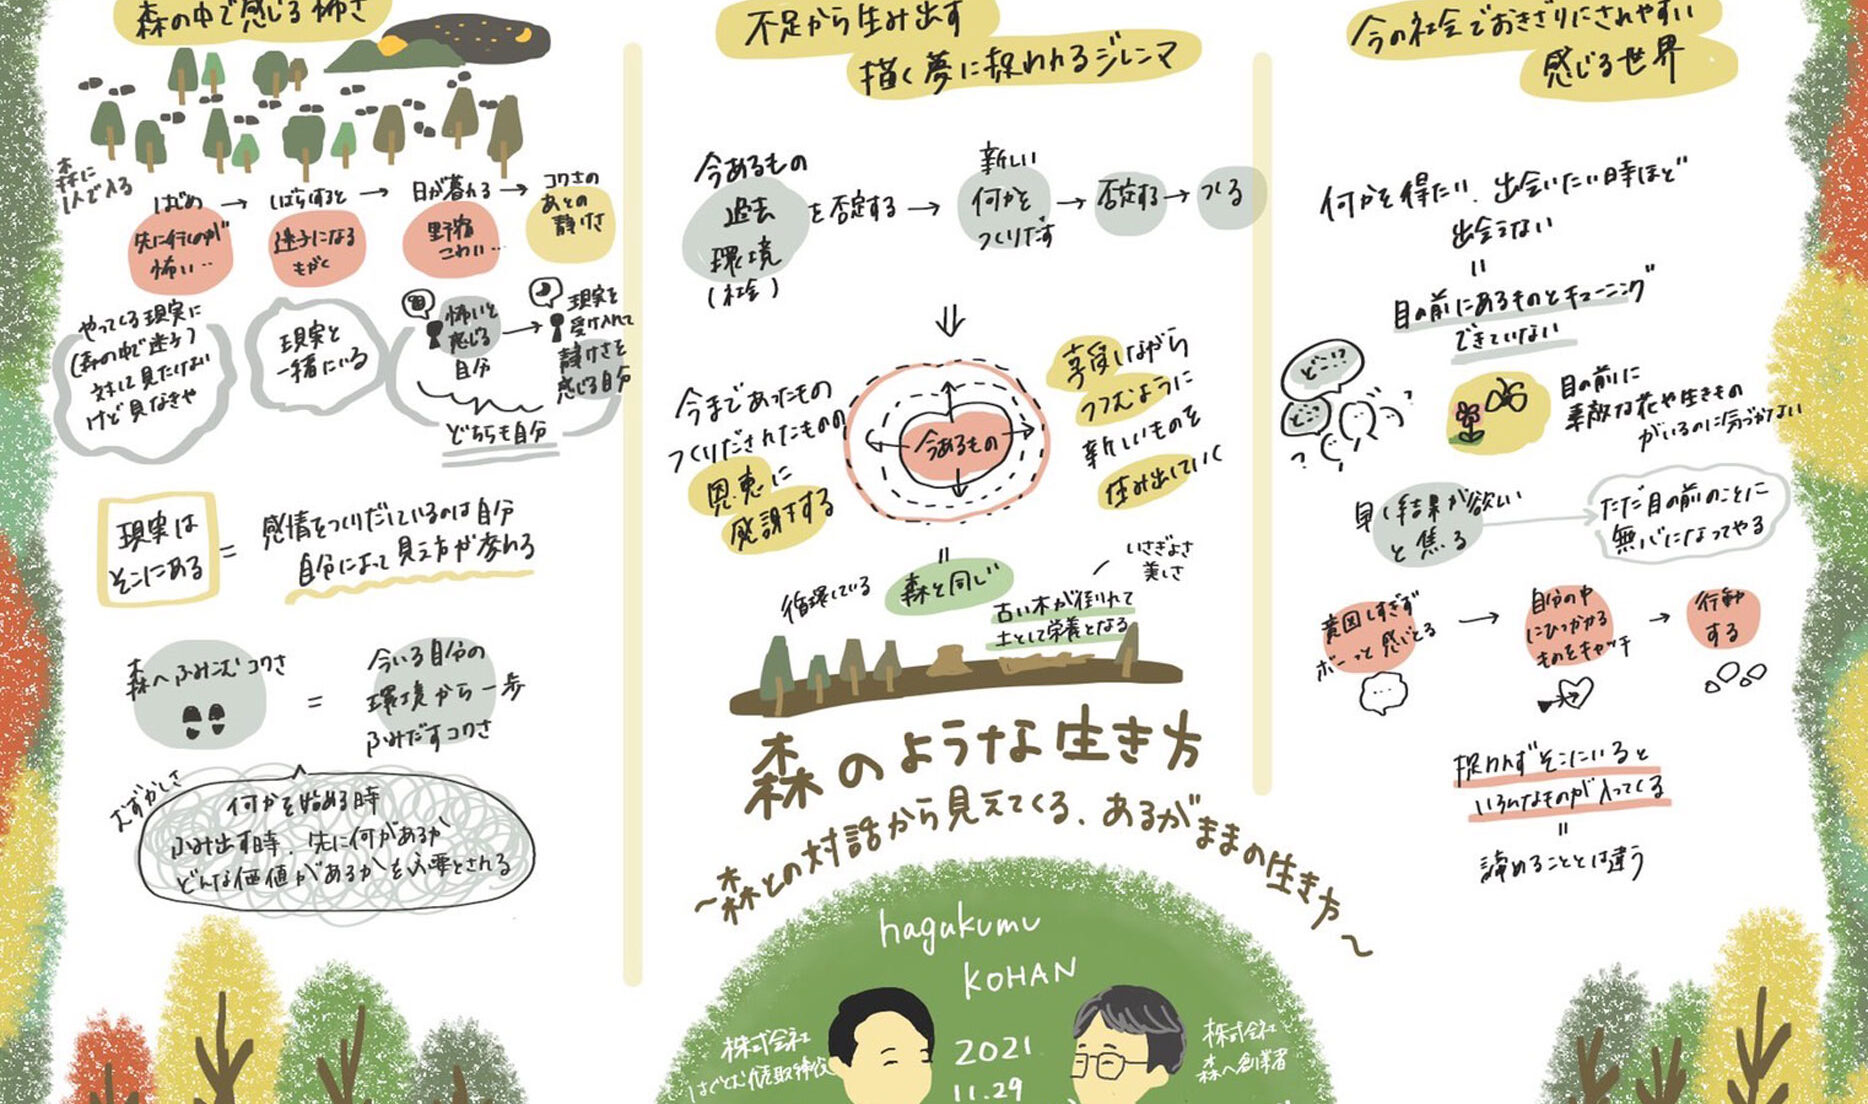 森の中で感じる怖さ
森に
1人で入る
はじめ → しばらくすると → 日が暮れる → コワさの
あとの
静けさ
先に行くのが
怖い‥
迷子になる
もがく
野宿
こわい…
やってくる現実に
(森の中で迷子)
対して見たくない
けど見なきゃ
現実と
一緒にいる
怖いと
感じる
自分
現実を
受け入れて
静けさを
感じる自分
どちらも自分
現実は
そこにある
=
感情をつくりだしているのは自分
自分によって見え方が変わる
森へふみこむコワさ
=
今いる自分の
環境から一歩
ふみだすコワさ
むずかしさ
何かを始める時
ふみ出す時、先に何があるか
どんな価値があるかを必要とされる
不足から生み出す
描く夢に捉われるジレンマ
今あるもの
過去
環境
(社会)
を否定する → 新しい
何かを
つくりだす
→ 否定する → つくる
今まであったもの
つくりだされたものの
恩恵に
感謝する
今あるもの
享受しながら
つつむように
新しいものを
生み出していく
=
循環している
森と同じ
いさぎよさ
美しさ
古い木が倒れて
土として栄養となる
森のような生き方
~森との対話から見えてくる、あるがままの生き方~
hagukumu
KOHAN
2021
11.29
株式会社
はぐくむ代表取締役
株式会社
森へ創業者
今の社会でおきざりにされやすい
感じる世界
何かを得たい、出会いたい時ほど
出会えない
=
目の前にあるものとチューニング
できていない
どこ!?
どこ?
?
目の前に
素敵な花や生きもの
がいるのに気づかない
早く結果が欲しい
と焦る
ただ目の前のことに
無心になってやる
意図しすぎず
ボーっと感じとる
→
自分の中
にひっかかる
ものをキャッチ
→
行動
する
捉われずそこにいると
いろんなものが入ってくる
=
諦めることとは違う